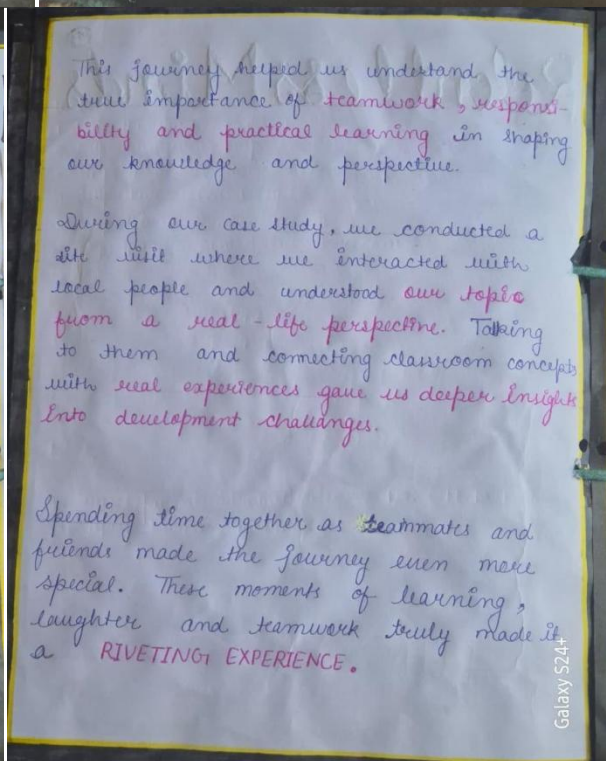 This journey helped us understand the
true importance of teamwork, responsi-
bility and practical learning in shaping
our knowledge and perspective.
During our case study, we conducted a
site visit where we interacted with
local people and understood our topic
from a real-life perspective. Talking
to them and connecting classroom concepts
with real experiences gave us deeper insights
into development challanges.
Spending time together as teammates and
friends made the journey even more
special. These moments of learning,
laughter and teamwork truly made it
a RIVETING EXPERIENCE.
Galaxy S24+